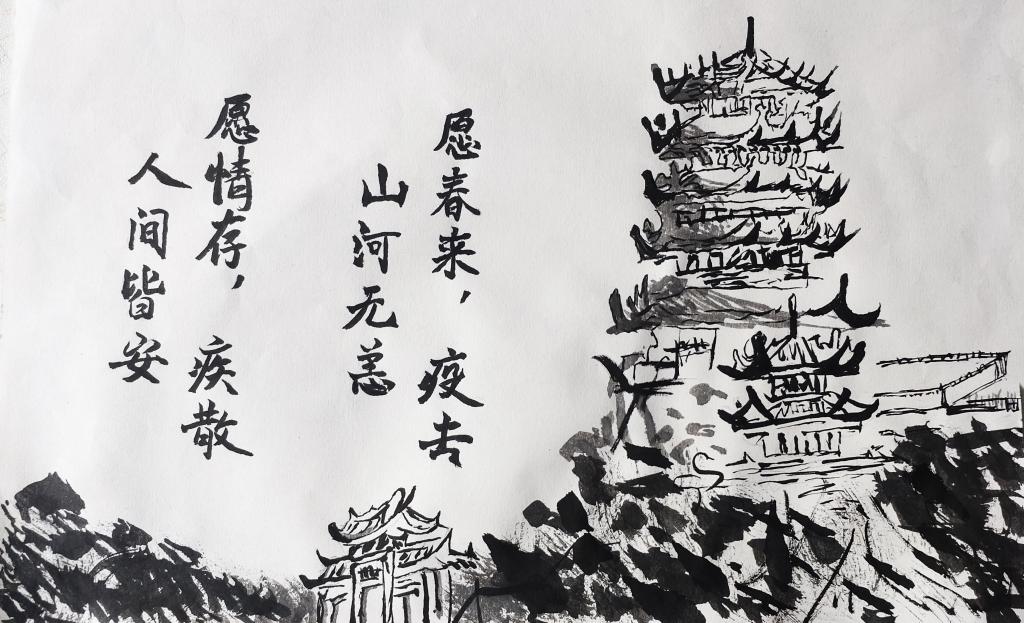 愿春来，疫去
山河无恙
愿情存，疾散
人间皆安